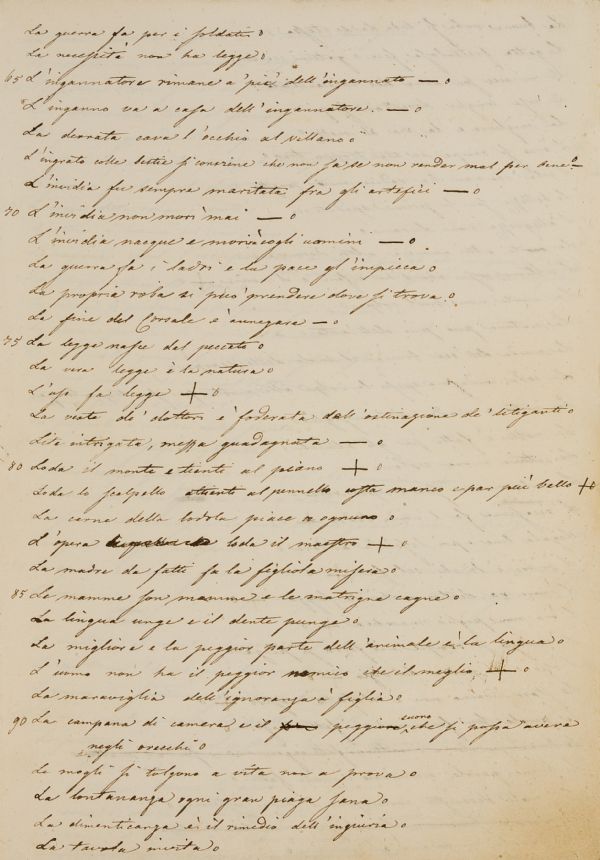 La guerra fa per i soldati o
La necessità non ha legge o
65 L'ingannatore rimane a' piè dell'ingannato — o
L'inganno va a casa dell'ingannatore. — o
La derrata cava l'occhio al villano o
L'ingrato colle bestie si conviene che non sa se non render mal per bene o —
L'invidia fu sempre maritata fra gli artefici — o
70 L'invidia non morì mai — o
L'invidia nacque e morirà cogli uomini — o
La guerra fa i ladri e la pace gl'impicca o
La propria roba si può prendere dove si trova. o
La fine del Corsale è annegare — o
75 La legge nasce dal peccato o
La vera legge è la natura o
L'uso fa legge + o
La veste de' dottori è foderata dell'ostinazione de' litiganti o
Lite intrigata, mezza guadagnata — o
80 Loda il monte e tienti al piano + o
Loda lo scalpello attienti al pennello costa manco e par più bello +
La carne della lodola piace a ognuno o
L'opera loda il maestro + o
La madre da fatti fa la figliola misera o
85 Le mamme son mamme e le matrigne cagne o
La lingua unge e il dente punge o
La migliore e la peggior parte dell'animale è la lingua o
L'uomo non ha il peggior nemico che il meglio + o
La maraviglia dell'ignoranza è figlia o
90 La campana di camera e il peggiore suono che si possa avere
negli orecchi o
Le mogli si tolgono a vita non a prova o
La lontananza ogni gran piaga sana o
La dimenticanza è il rimedio dell'ingiuria o
La tavola invita o